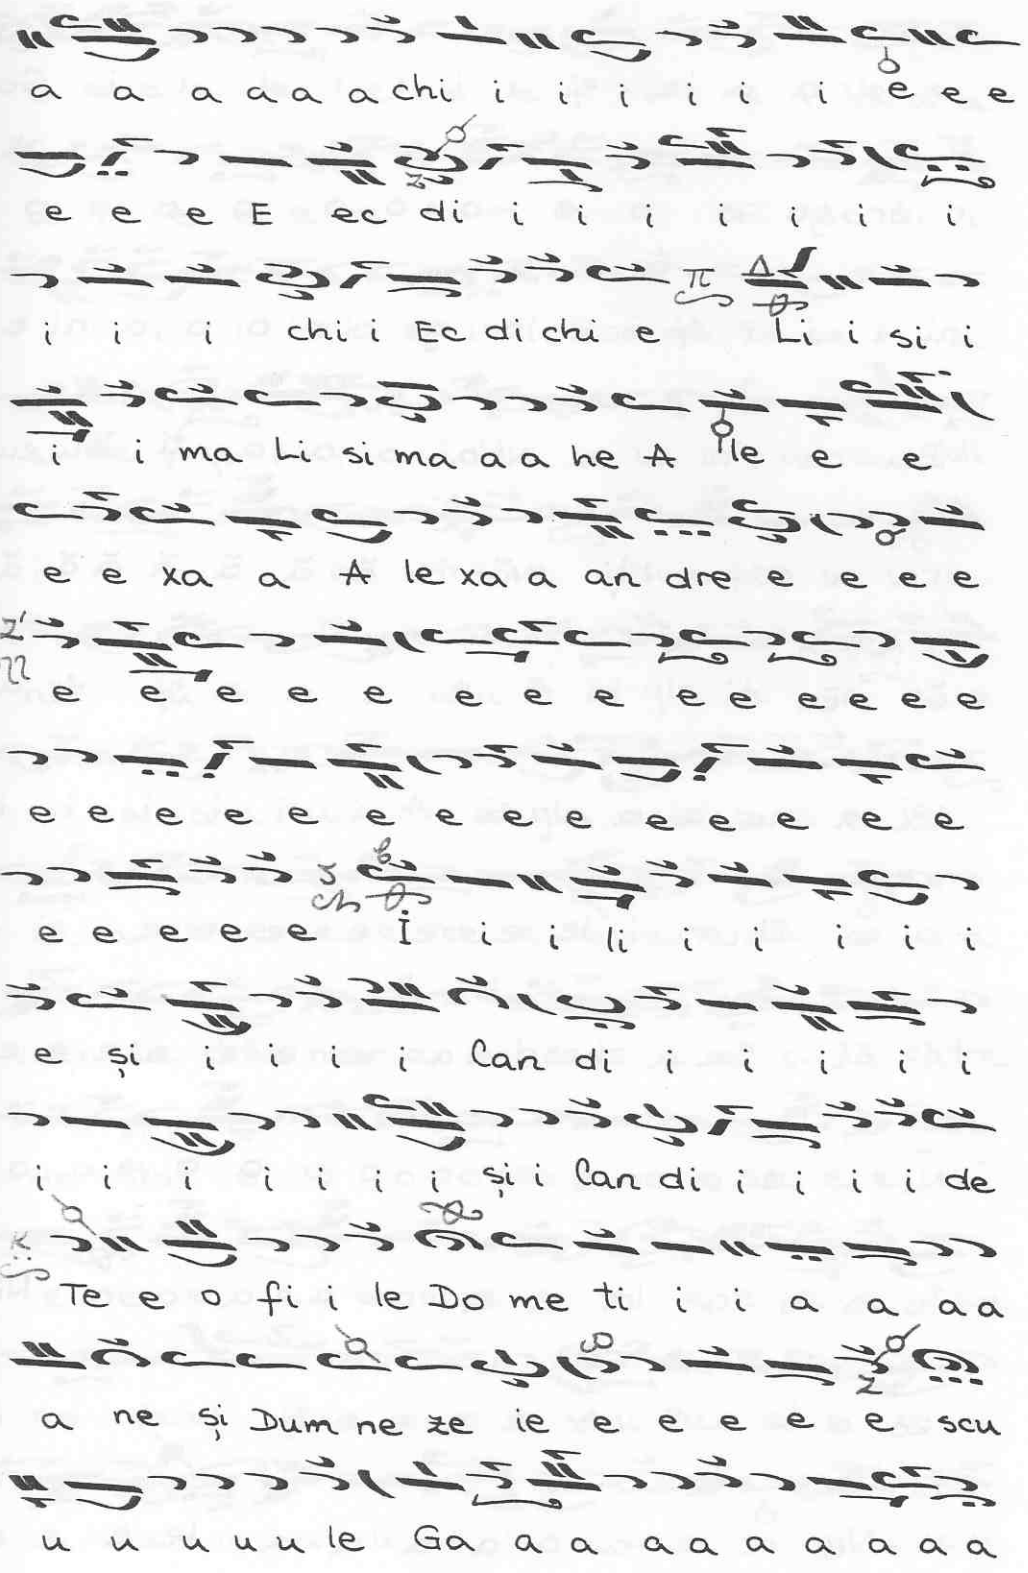 a a a a a a chi i i i i i i e e e
e e e E ec di i i i i i i i
i i i chi i Ec di chi e Li i si i
i i ma Li si ma a a he A le e e
e e xa a A le xa a an dre e e e e
e e e e e e e e e e e e e
e e e e e e e e e e e e e e
e e e e e I i i li i i i i i
e și i i i i Can di i i i i i
i i i i i i i și i Can di i i i i de
Te e o fi i le Do me ti i i a a a a
a ne și Dum ne ze ie e e e e e scu
u u u u u le Ga a a a a a a a a a